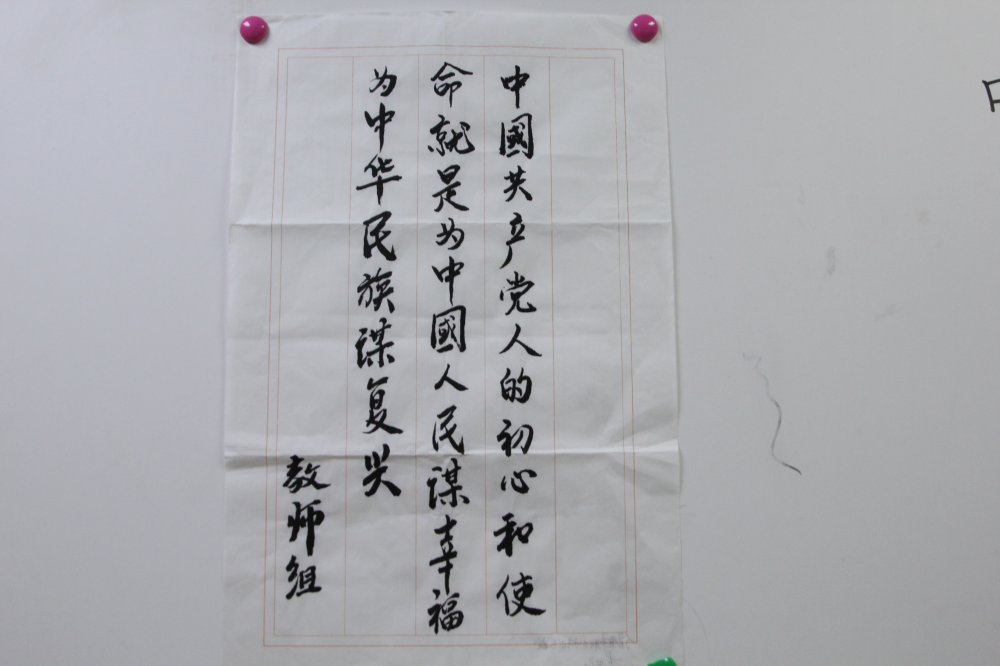 中國共产党人的初心和使
命就是为中國人民谋幸福
为中华民族谋复兴
教师组